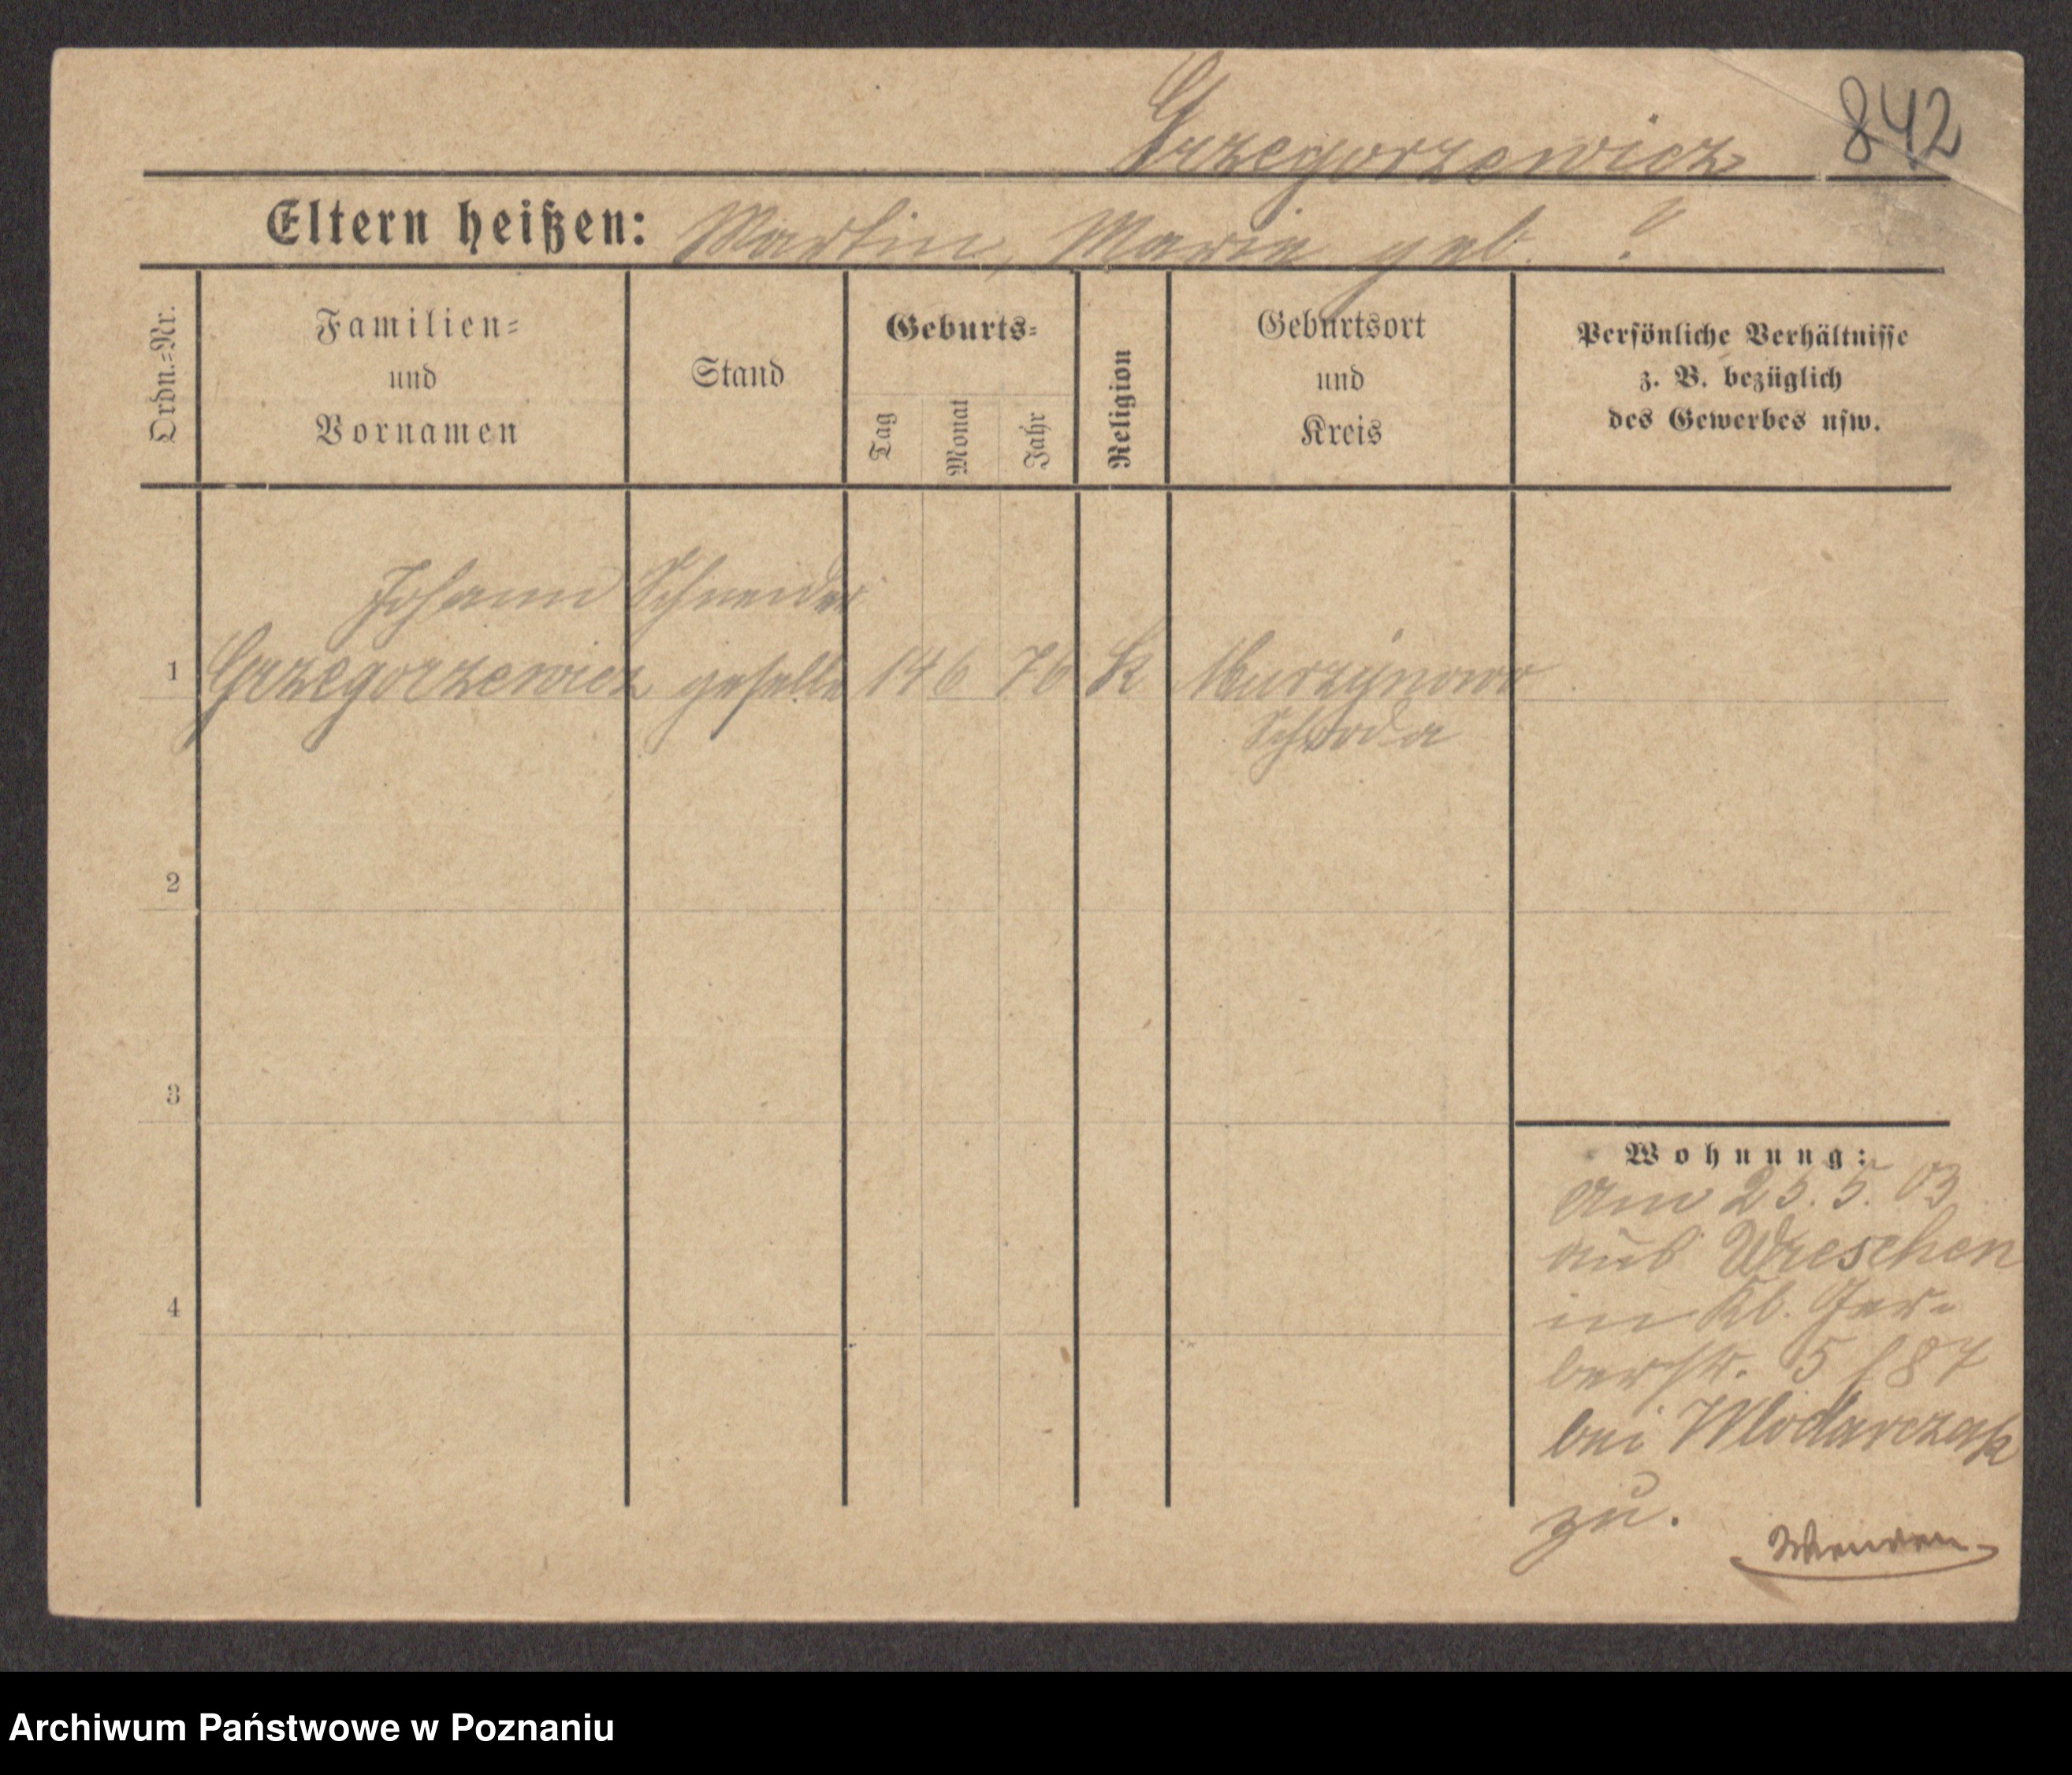 842
Grzegorzewicz
Eltern heißen: Martin, Marie geb. ?
Ordn.=Nr.
Familien=
und
Vornamen
Stand
Geburts=
Tag
Monat
Jahr
Religion
Geburtsort
und
Kreis
Persönliche Verhältnisse
z. B. bezüglich
des Gewerbes usw.
Johann Schneider
1 Grzegorzewicz geselle 14 6 76 K Murzynowo
Schroda
2
3
4
Wohnung:
Am 25.5.03
aus Wreschen
in Kl. Ger-
berstr. 5 / 87
bei Wlodarczak
zu.
Wenden
Archiwum Państwowe w Poznaniu